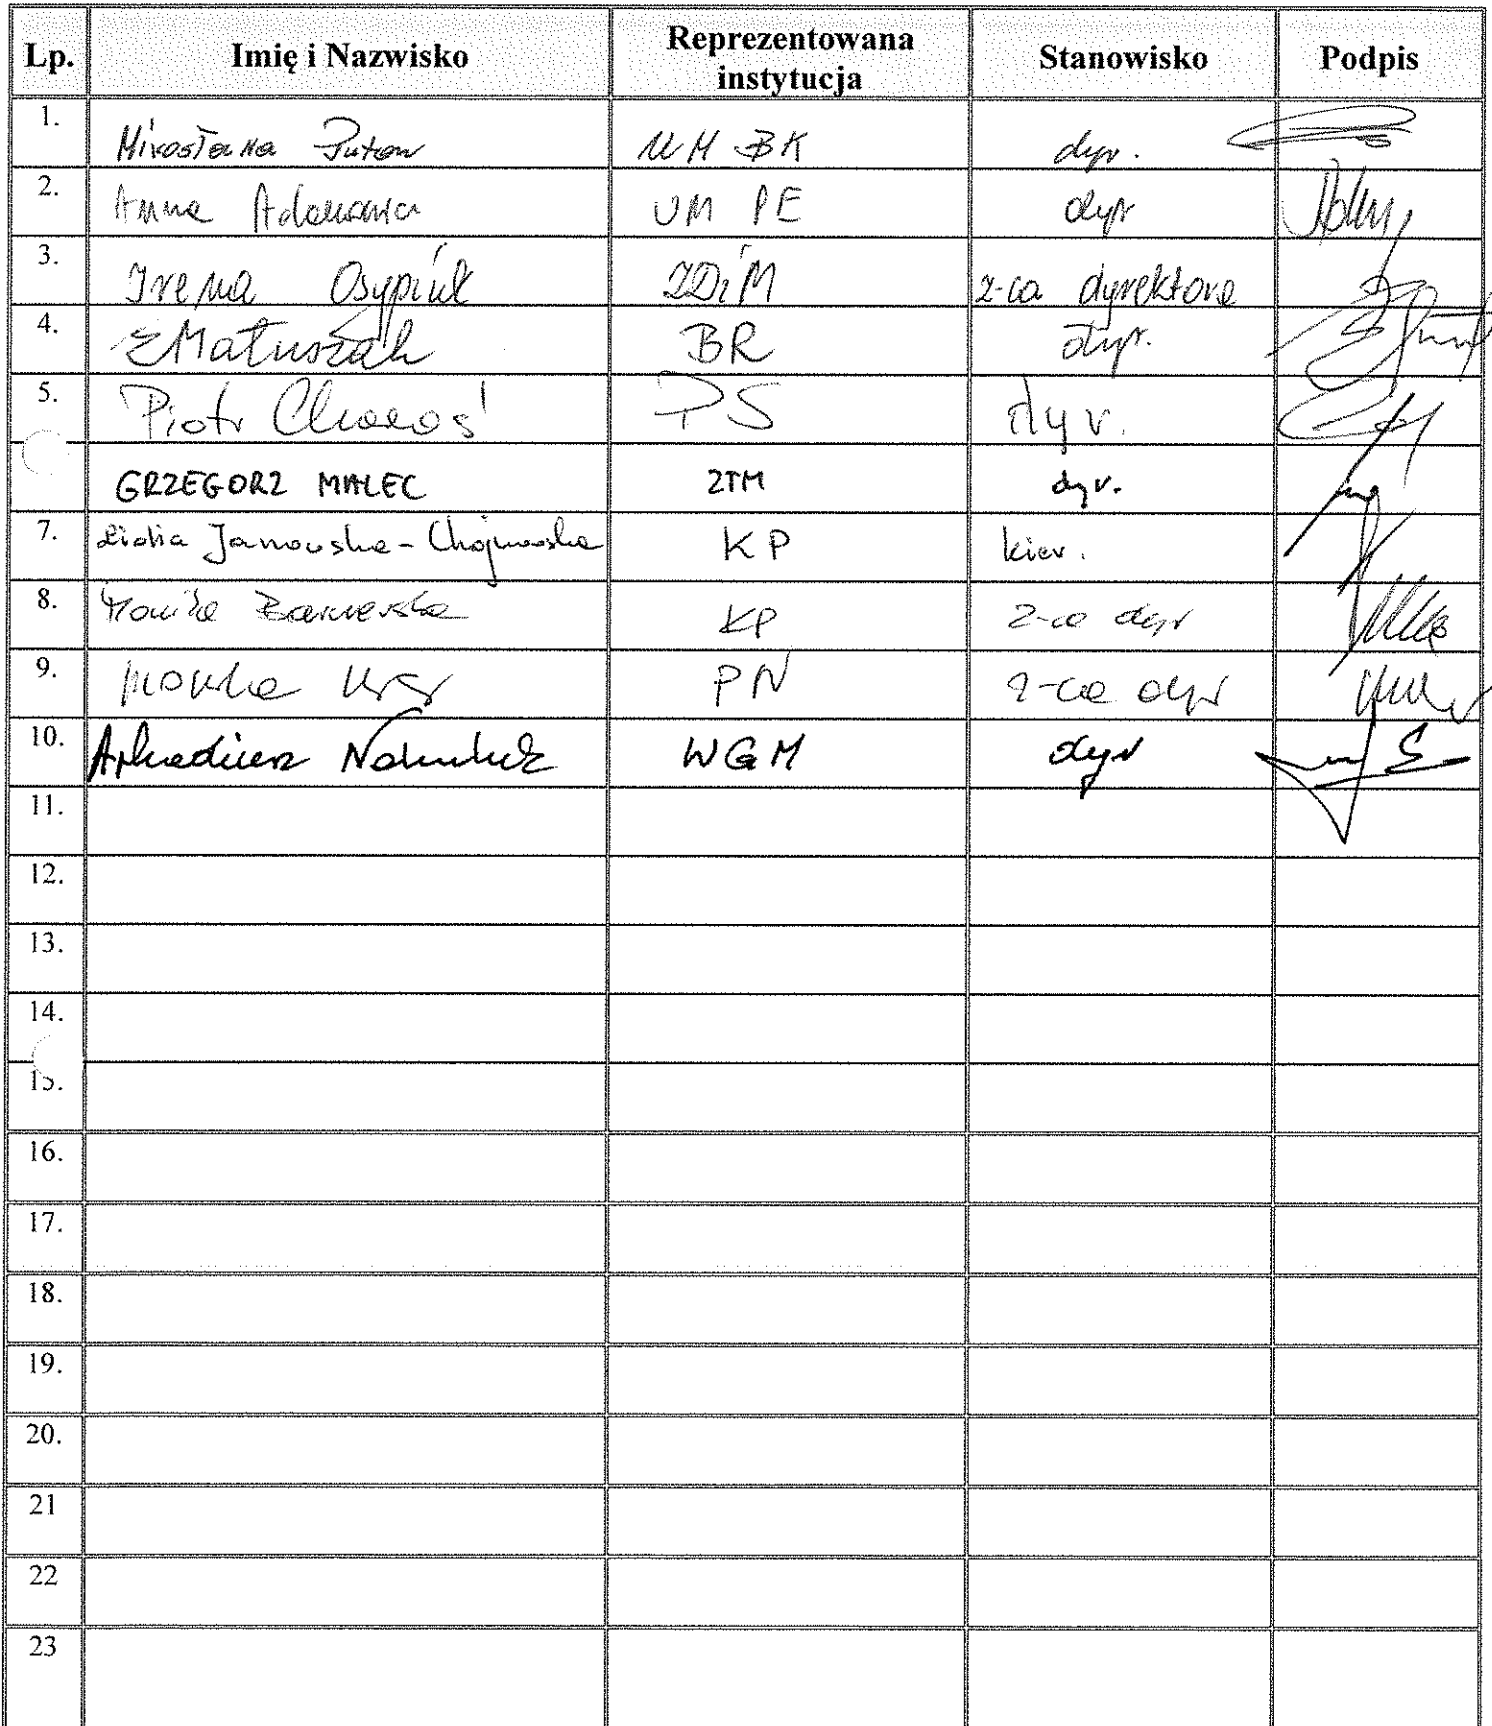 Lp. Imię i Nazwisko Reprezentowana instytucja Stanowisko Podpis
1. Mirosława Puton UM BK dyr.
2. Anna UM PE dyr
3. Irena Osypiuk ZDiM z-ca dyrektora
4. E Matuszak BR dyr.
5. Piotr PS dyr.
GRZEGORZ MALEC ZTM dyr.
7. Lidia Janowska-Chojnowska KP kier.
8. Monika KP z-ca dyr
9. Monika PN z-ca dyr
10. Arkadiusz Nahuluk WGM dyr
11.
12.
13.
14.
15.
16.
17.
18.
19.
20.
21
22
23